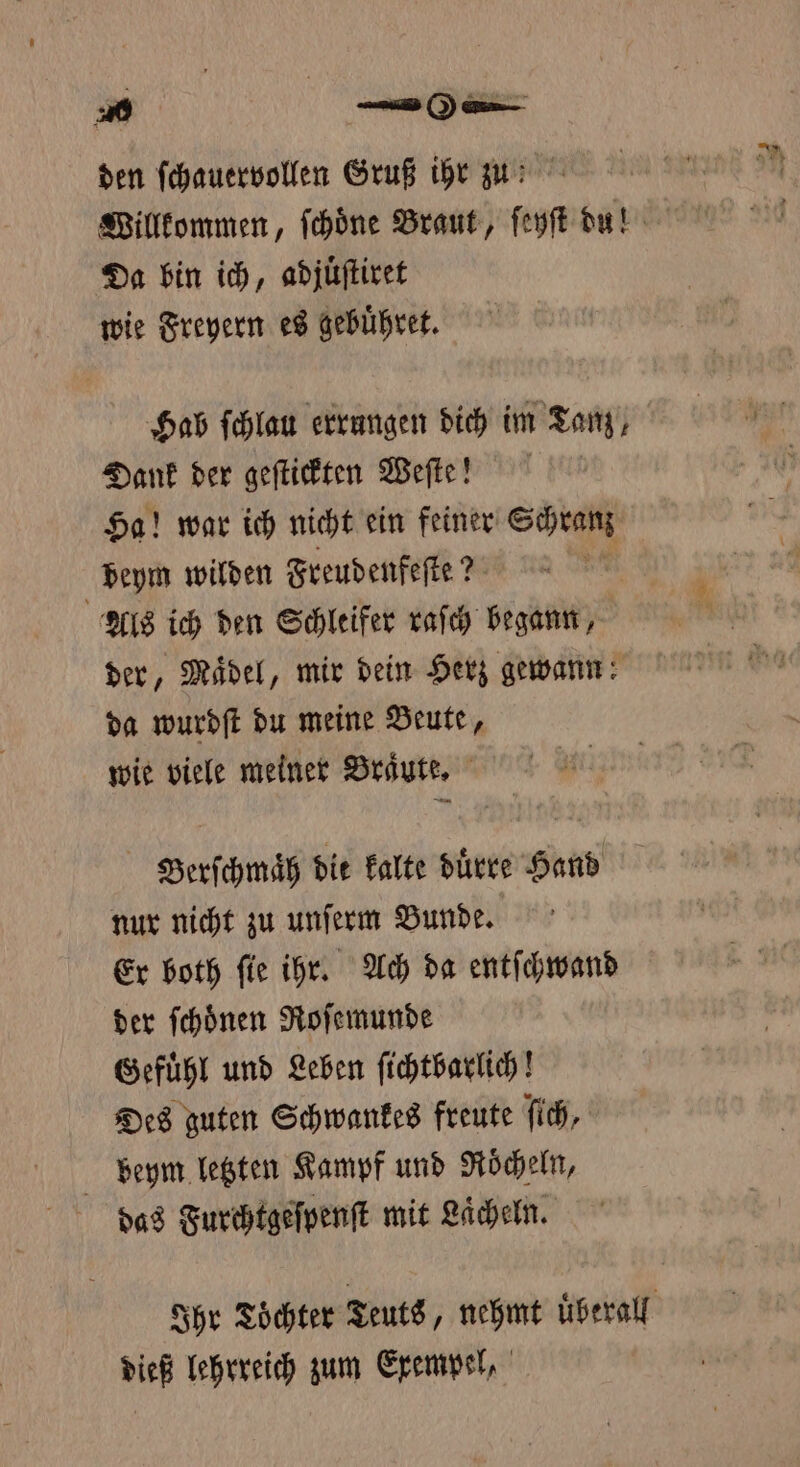 den ſchauervollen Gruß ihr zu:
Willkommen, ſchoͤne Braut, ſeyſt du!
Da bin ich, adjuͤſtiret
wie Freyern es gebuͤhret.
Hab ſchlau errungen dich im Tanz,
Dank der geſtickten Weſte!
Ha! war ich nicht ein feiner Schranz
beym wilden Freudenfeſte?
Als ich den Schleifer raſch begann,
der, Maͤdel, mir dein Herz gewann:
da wurdſt du meine Beute,
wie viele meiner Braͤute.
Verſchmaͤh die kalte duͤrre Hand
nur nicht zu unſerm Bunde.
Er both ſie ihr. Ach da entſchwand
der ſchoͤnen Roſemunde
Gefuͤhl und Leben ſichtbarlich!
Des guten Schwankes freute ſich,
beym letzten Kampf und Roͤcheln,
das Furchtgeſpenſt mit Laͤcheln.
Ihr Toͤchter Teuts, nehmt uͤberall
dieß lehrreich zum Exempel,